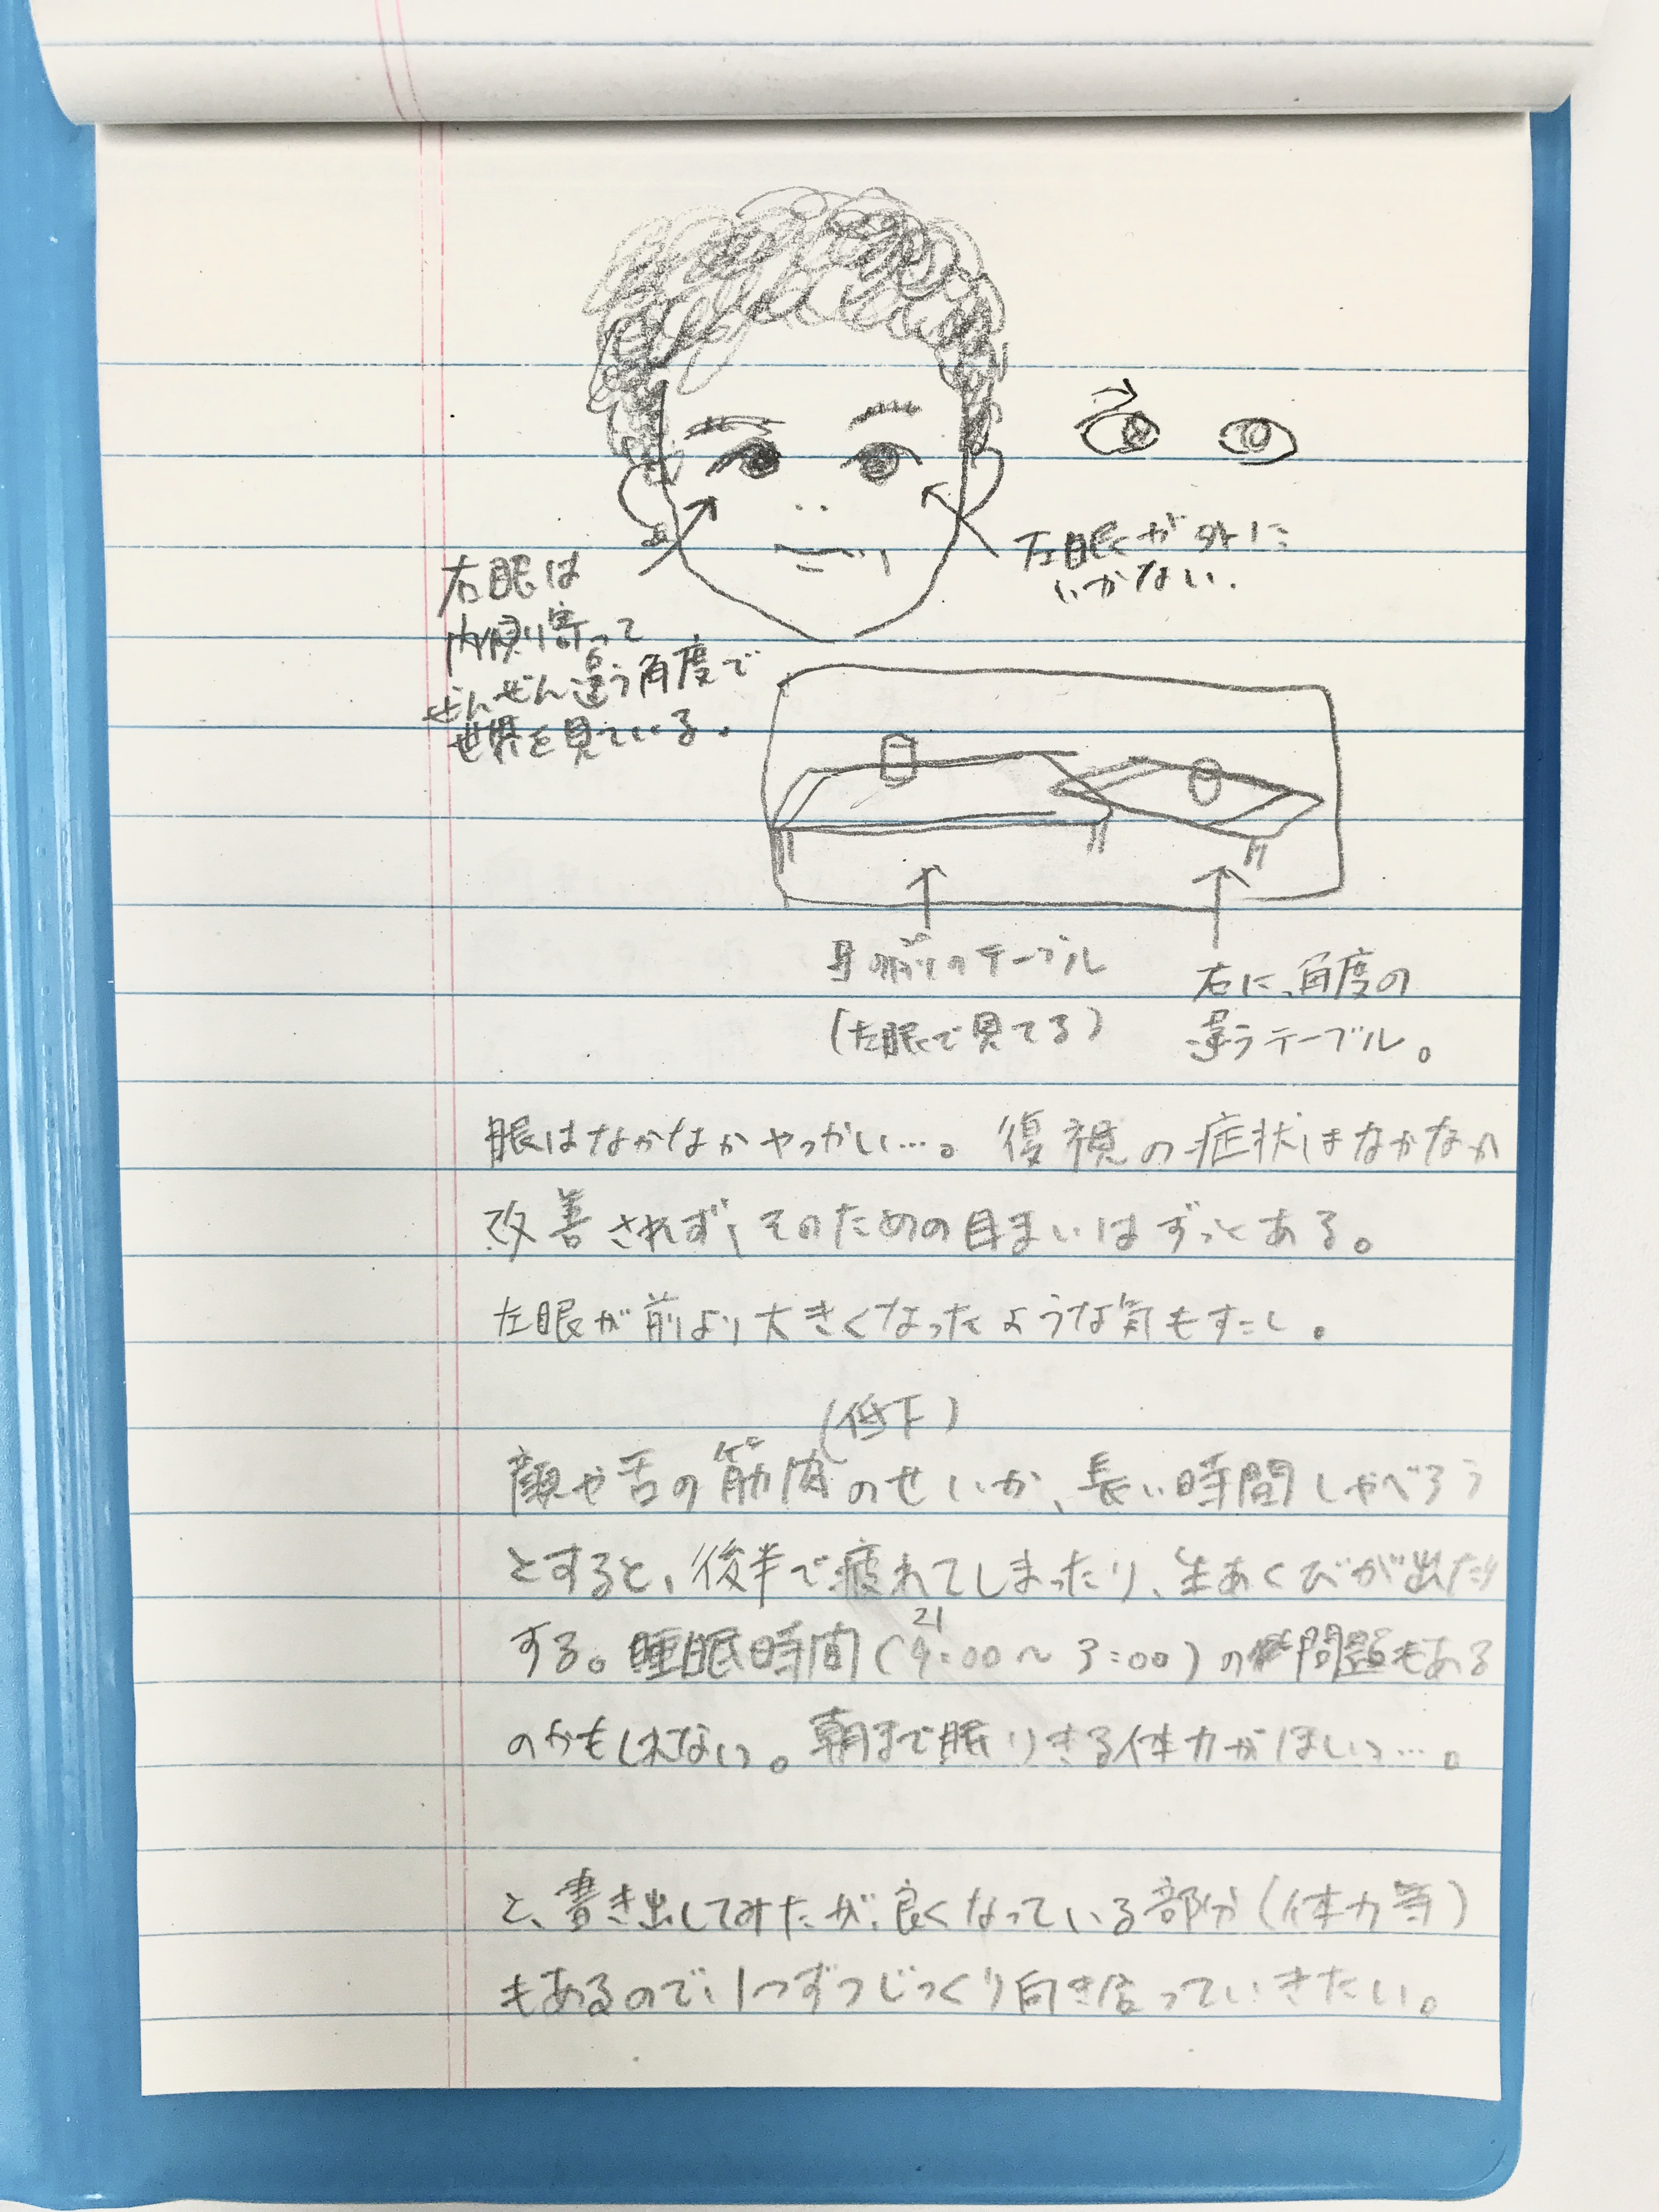 右眼は
内側に寄って
ぜんぜん違う角度で
世界を見ている。
左眼が外に
いかない.
目の前のテーブル
(左眼で見てる)
右に、角度の
違うテーブル。
眼はなかなかやっかい…。復視の症状はなかなか
改善されず、そのための目まいはずっとある。
左眼が前より大きくなったような気もすこし。
(低下)
顔や舌の筋肉のせいか、長い時間しゃべろう
とすると、後半で疲れてしまったり、生あくびが出たり
する。睡眠時間(21:00〜3:00)の問題もある
のかもしれない。朝まで眠りきる体力がほしい…。
と、書き出してみたが、良くなっている部分(体力等)
もあるので、1つずつじっくり向き合っていきたい。